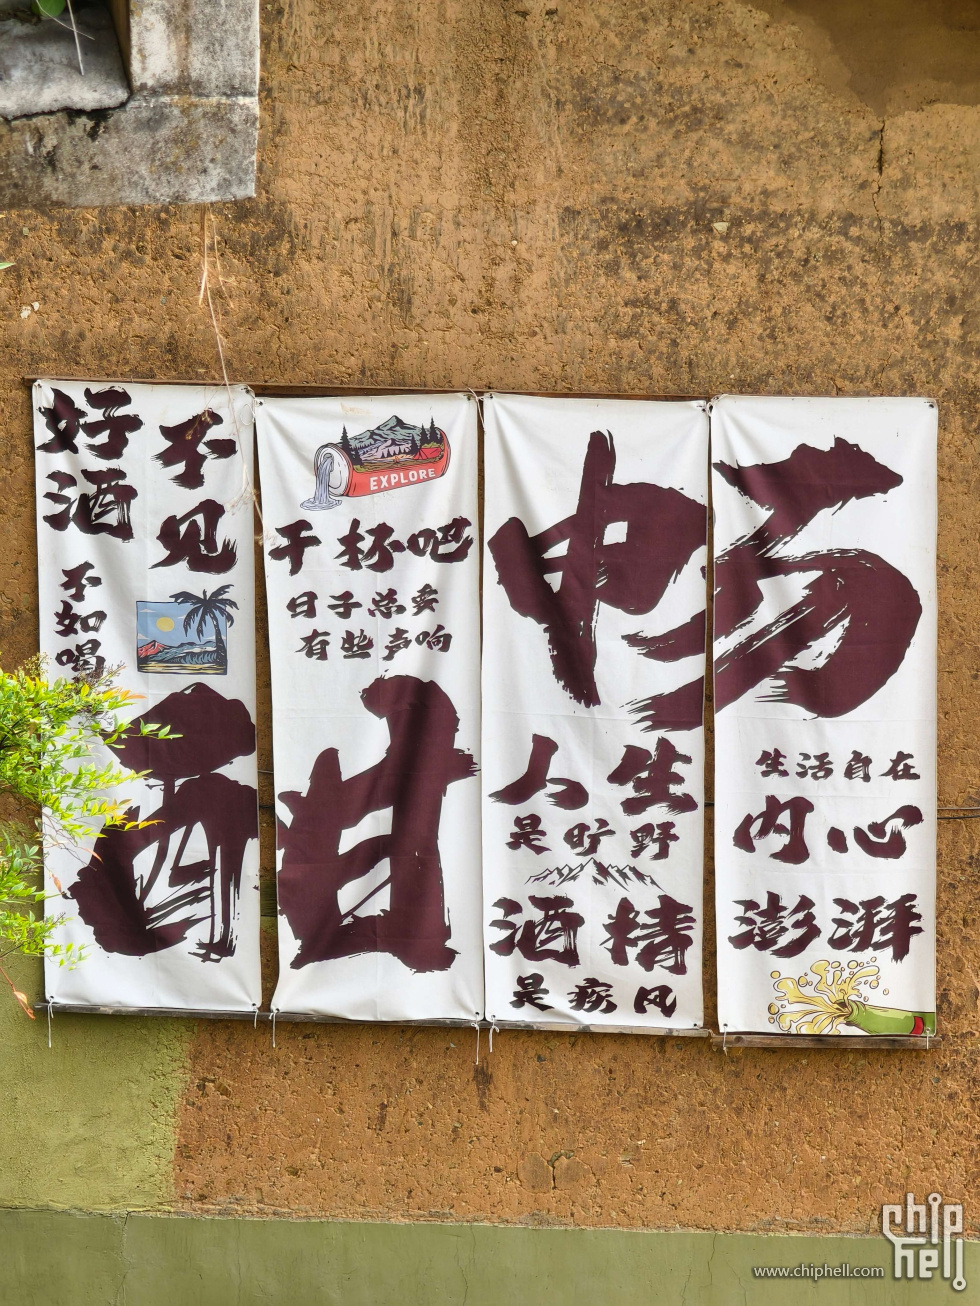 好酒
不见
不如喝
酣
EXPLORE
干杯吧
日子总要
有些声响
畅
人生
是旷野
酒精
是疾风
生活自在
内心
澎湃
www.chiphell.com
chip
hell